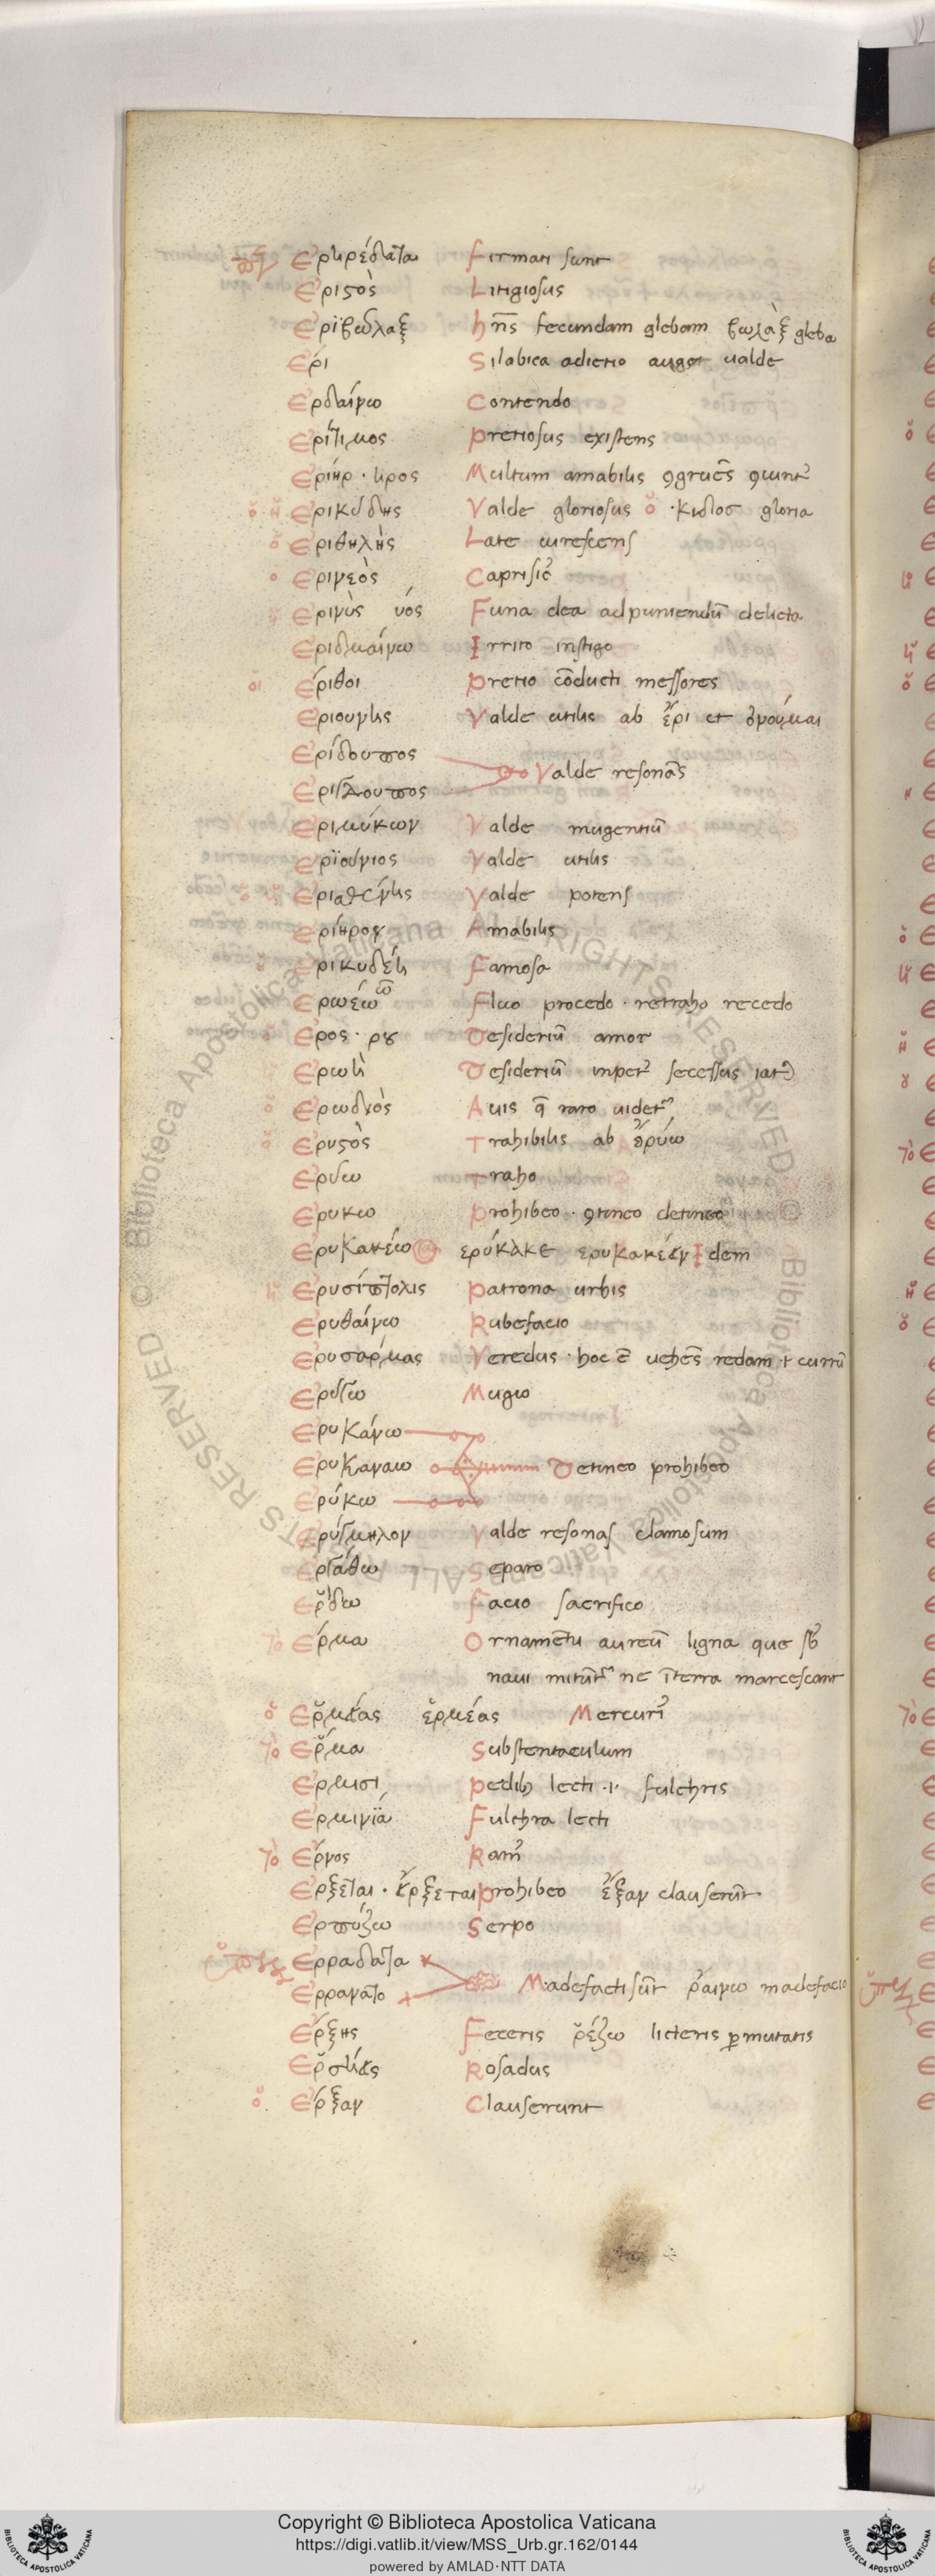 Ερηρέδατο Firmati sunt
Εριςὸς Litigiosus
Ερϊβώλαξ hn̄s fecundam glebam βωλὰξ gleba
Ερι Silabica adictio auget ualde
Ερδαίνω Contendo
Ερίτιμος Pretiosus existens
Ερίηρ · ηρος Multum amabilis
ὁ ἡ Ερικυδης Valde gloriosus ὁ · κιδοσ gloria
ὁ Εριθηλὴς Late uirescens
ὁ Ερινεὸς
Ερινὺς ύος Furia dea ad puniendū delicta
Εριδμαίνω Irrito instigo
οἱ Εριθοι Pretio cōducti messores
Εριουνης Valde utilis ab ἔρι et ὀνούμαι
Ερίδουπος
Valde resonās
Ερίγδουπος
Ερικύκων Valde mugentiū
Ερϊούνιος Valde utilis
Ερισθένης Valde potens
Ερίηρος Amabilis
Ερικυδέη Famosa
Ερωέω ῶ Fluo procedo · retraho recedo
Ερος · ρου Desideriū amor
Ερωὴ Desideriū
Ερωδιὸς Auis q̄ raro uidet
Ερυςὸς Trahibilis ab ἐρύω
Ερύω Traho
Ερυκω Prohibeo · 9tineo detineo
Ερυκακέω ερύκακε ερυκακέειν Idem
Ερυσίπτολις Patrona urbis
Ερυθαίνω Rubefacio
Ερυσαρμας Veredus · hoc ē uehēs redam · currū
Ερύγω Mugio
Ερυκάνω
Ερυκαναω Detineo prohibeo
Ερύκω
Ερύγμηλον Valde resonas clamosum
Εργάθω Separo
Ερδω Facio sacrifico
Το Ερμα Ornamētū aureū ligna que
naui ne īterra marcescant
ὁ Ερμείας ἑρμέας Mercuri
Το Ερμα Substentaculum
Ερμισι Pedib lecti · i · fulchris
Ερμινϊα Fulchra lecti
Το Ερνος Ram
Ερξεται · ἔρξεται Prohibeo ἔξαν clauserūt
Ερπύζω Serpo
Ερραδατο
Madefacti sūt ῥαινω madefacio
Ερρανατο
Ερξης Feceris ῥέζω licteris pmutatis
Ερσηεις Rosadus
Ερξαν Clauserunt
Copyright © Biblioteca Apostolica Vaticana
https://digi.vatlib.it/view/MSS_Urb.gr.162/0144
powered by AMLAD·NTT DATA